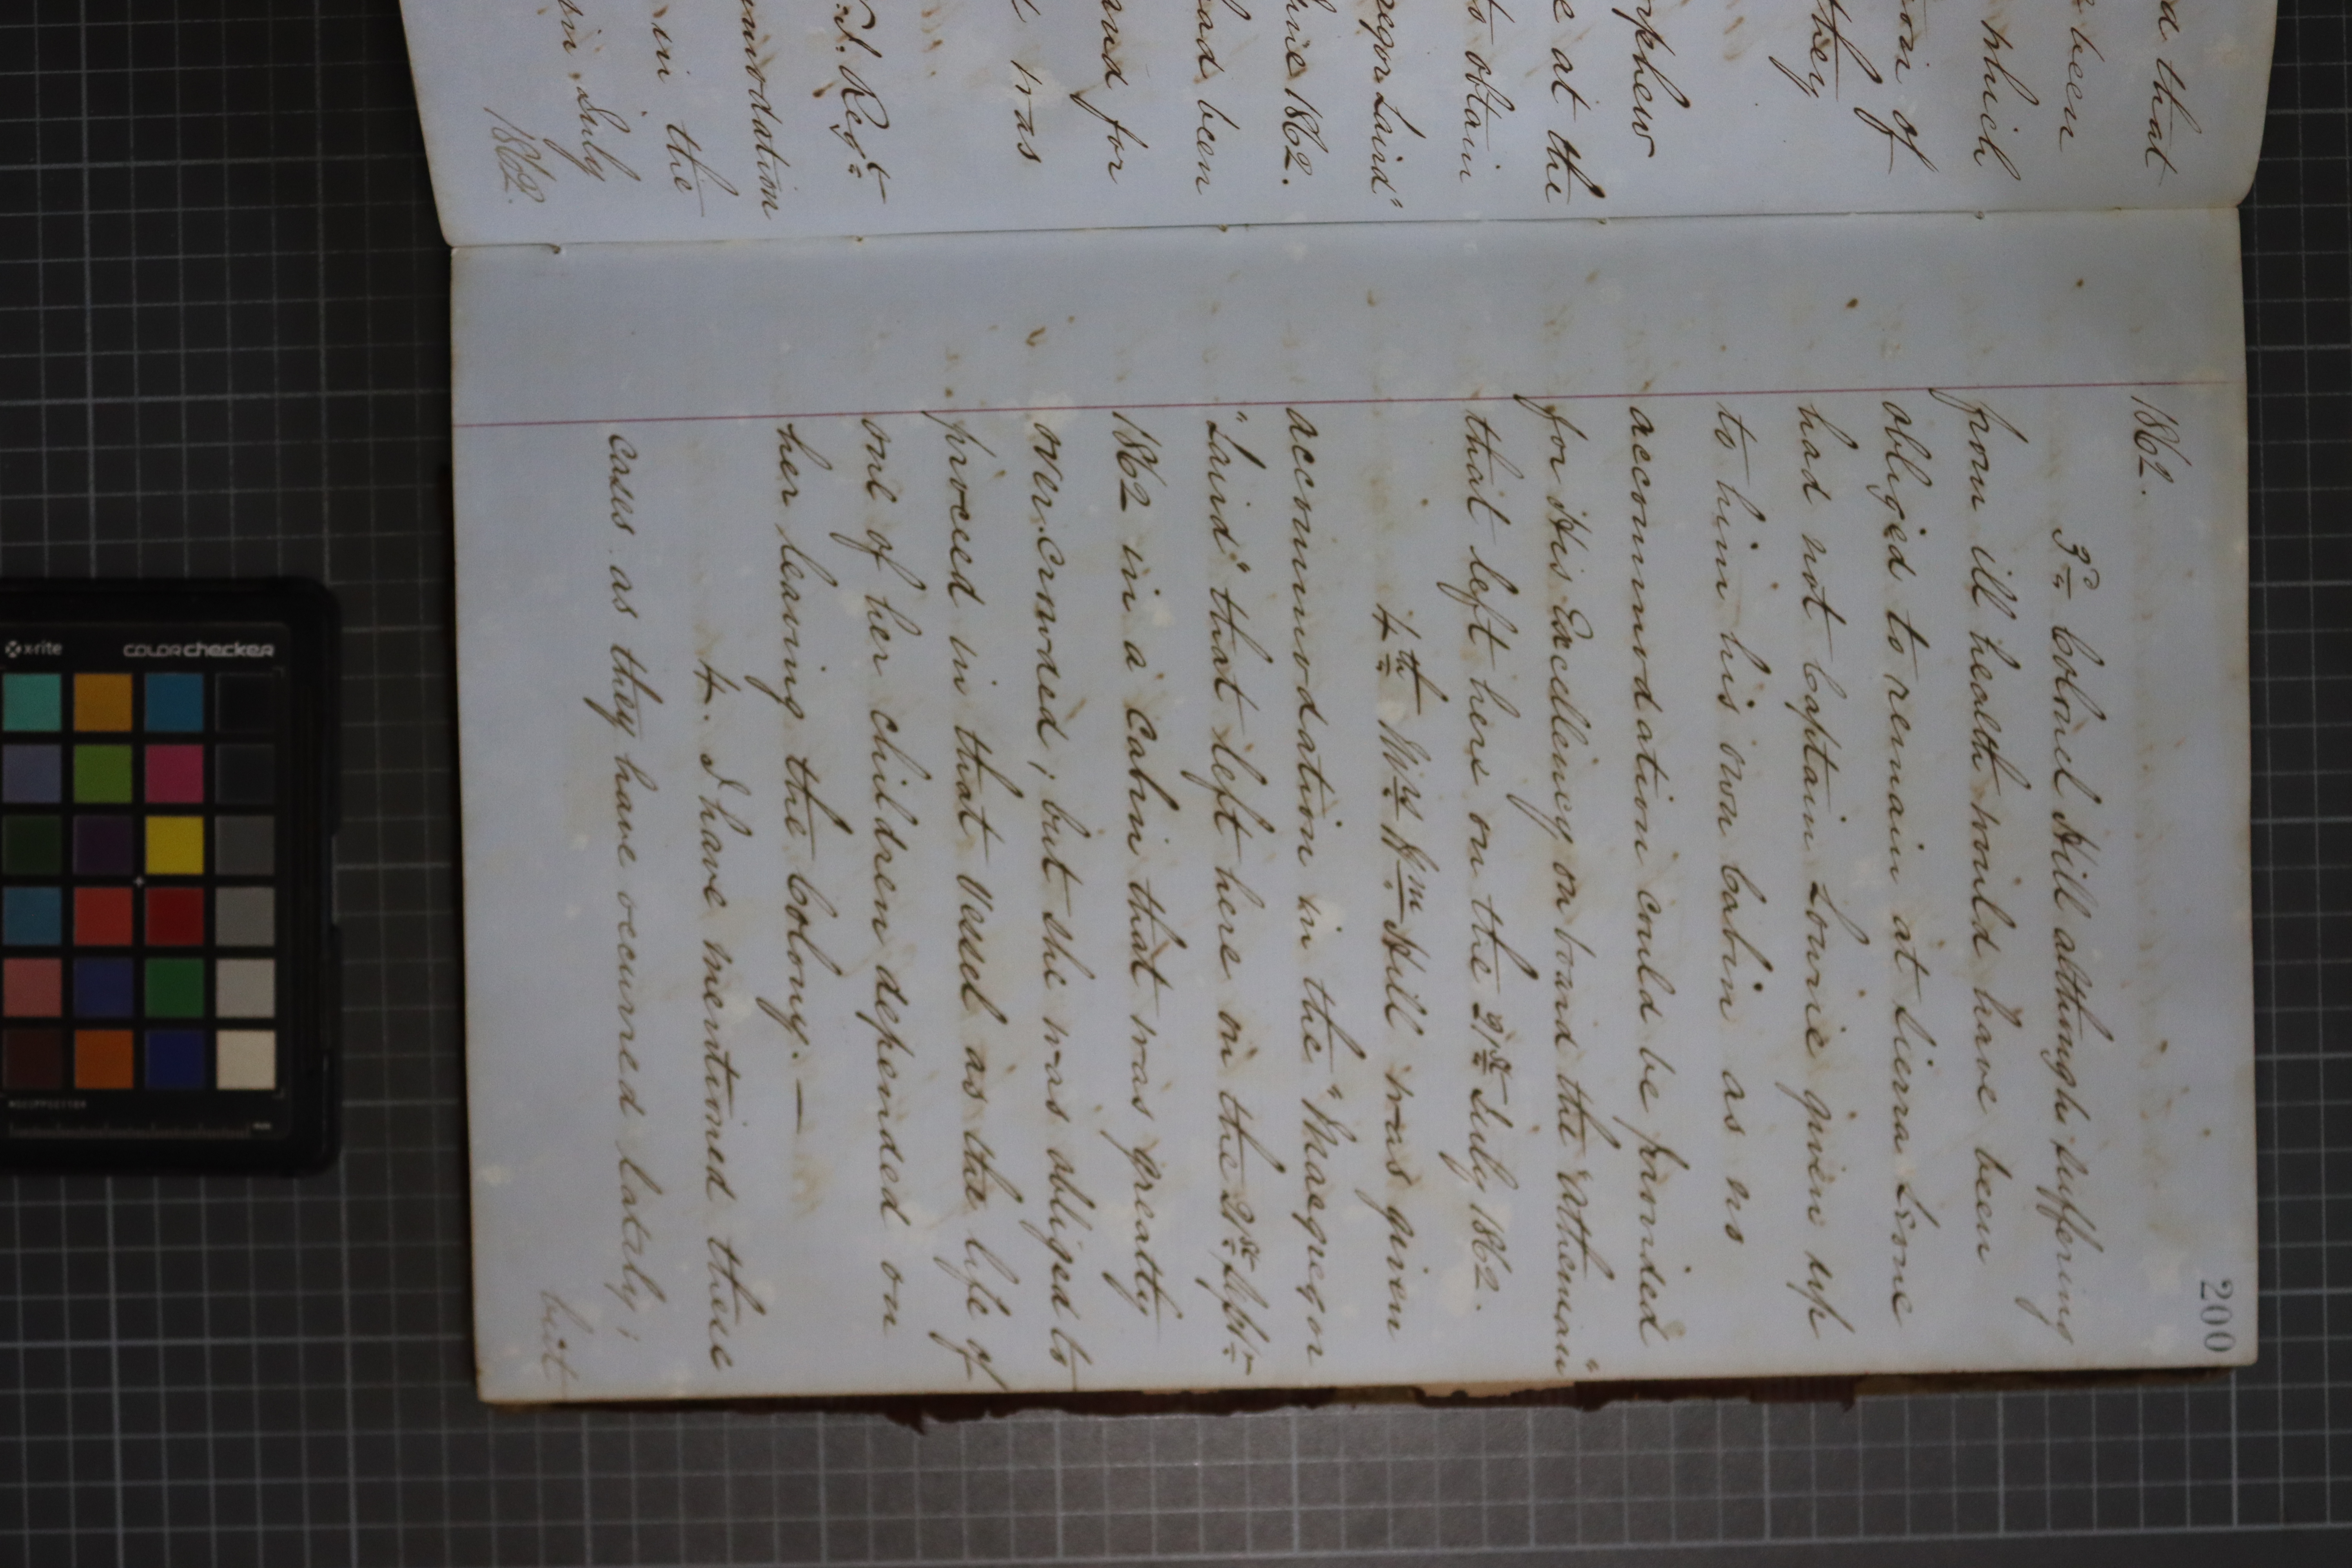 d that
been
which
ion of
they
rphew
e at the
to obtain
acgor Laird"
une 1862.
had been
and for
t was
.I. Regt.
ommodation
in the
in July
1862.
200
1862.
3d. Colonel Hill although suffering
from ill health would have been
obliged to remain at Sierra Leone
had not Captain Lowrie given up
to him his own Cabin as no
accommodation could be provided
for His Excellency on board the "Athenian"
that left here on the 21st. July 1862.
4th. Mrs. Wm. Hill was given
accommodation in the "Macgregor
"Laird" that left here on the 21st. Septr.
1862 in a Cabin that was greatly
over-crowded; but she was obliged to
proceed in that vessel as the life of
one of her children depended on
her leaving the Colony. —
4. I have mentioned these
cases as they have occurred lately;
but
x-rite
colorchecker